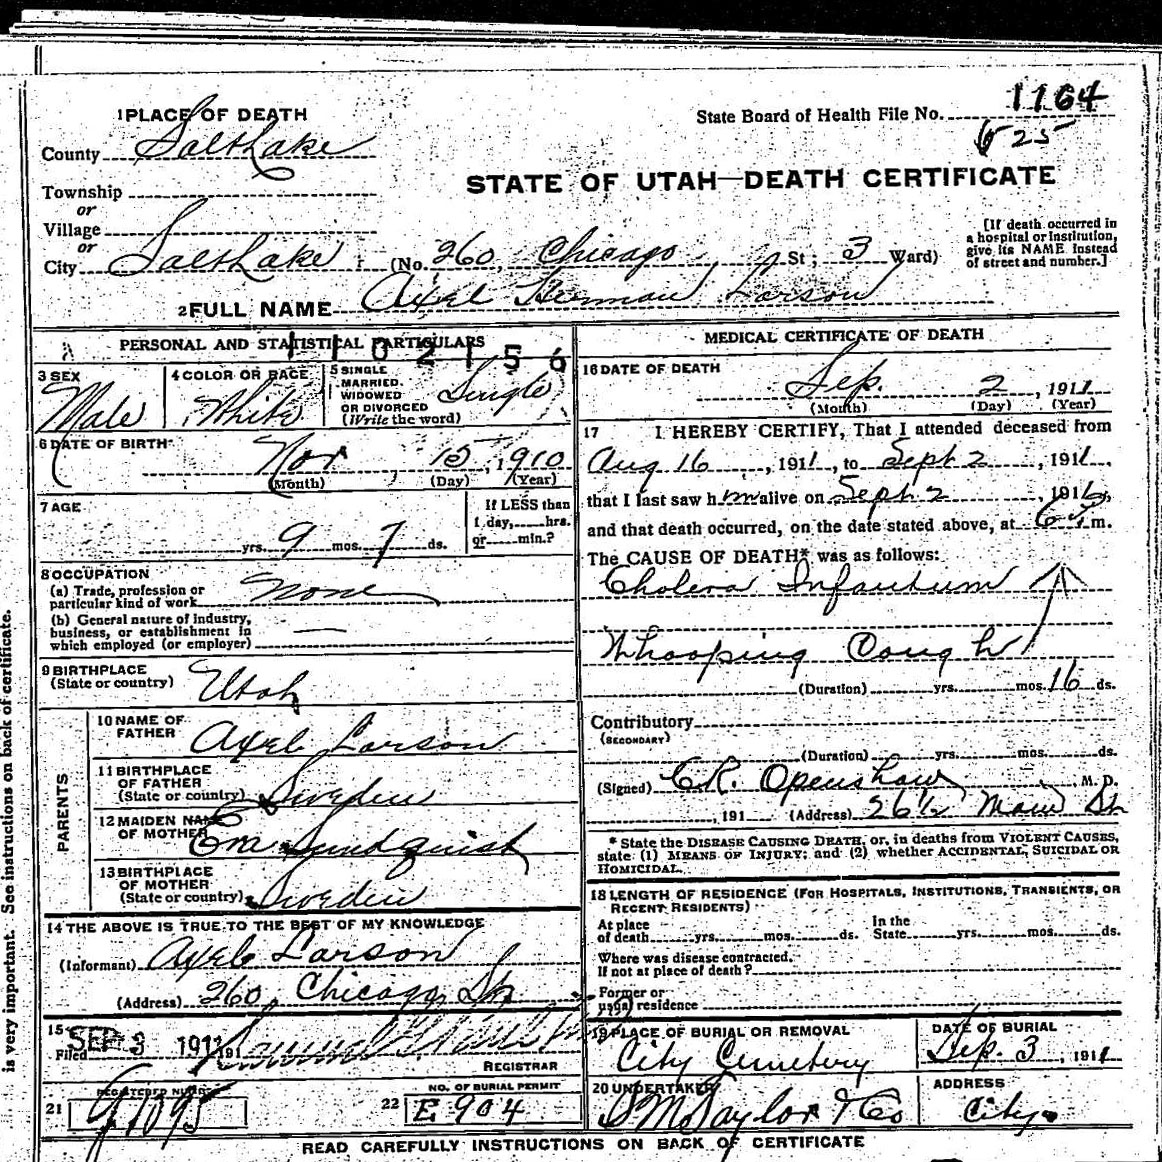 1 PLACE OF DEATH
State Board of Health File No. 1164
525
County Salt Lake
Township
or
Village
or
City Salt Lake
STATE OF UTAH—DEATH CERTIFICATE
(No. 260, Chicago, St; 3 Ward)
[If death occurred in a hospital or institution, give its NAME instead of street and number.]
2 FULL NAME Axel Herman Larson
PERSONAL AND STATISTICAL PARTICULARS
1102156
3 SEX
Male
4 COLOR OR RACE
White
5 SINGLE MARRIED WIDOWED OR DIVORCED (Write the word)
Single
6 DATE OF BIRTH
Nov 15, 1910
(Month) (Day) (Year)
7 AGE
yrs. 9 mos. 7 ds.
If LESS than 1 day, hrs. or min.?
8 OCCUPATION
(a) Trade, profession or particular kind of work None
(b) General nature of industry, business, or establishment in which employed (or employer) —
9 BIRTHPLACE (State or country) Utah
PARENTS
10 NAME OF FATHER Axel Larson
11 BIRTHPLACE OF FATHER (State or country) Sweden
12 MAIDEN NAME OF MOTHER Eva Sundquist
13 BIRTHPLACE OF MOTHER (State or country) Sweden
14 THE ABOVE IS TRUE TO THE BEST OF MY KNOWLEDGE
(Informant) Axel Larson
(Address) 260, Chicago, St
15
Filed SEP 3 1911 191
REGISTRAR
REGISTERED NUMBER
21
22 NO. OF BURIAL PERMIT
E 904
MEDICAL CERTIFICATE OF DEATH
16 DATE OF DEATH
Sep. 2, 1911
(Month) (Day) (Year)
17 I HEREBY CERTIFY, That I attended deceased from
Aug 16, 1911, to Sept 2, 1911,
that I last saw him alive on Sept 2, 191
and that death occurred, on the date stated above, at m.
The CAUSE OF DEATH* was as follows:
Cholera Infantum
Whooping Cough
(Duration) yrs. mos. 16 ds.
Contributory
(SECONDARY)
(Duration) yrs. mos. ds.
(Signed) C.R. Openshaw, M.D.
, 191 (Address) 26½ Main St
* State the DISEASE CAUSING DEATH, or, in deaths from VIOLENT CAUSES, state (1) MEANS OF INJURY; and (2) whether ACCIDENTAL, SUICIDAL OR HOMICIDAL.
18 LENGTH OF RESIDENCE (FOR HOSPITALS, INSTITUTIONS, TRANSIENTS, OR RECENT RESIDENTS)
At place of death yrs. mos. ds. In the State yrs. mos. ds.
Where was disease contracted, If not at place of death?
Former or usual residence
19 PLACE OF BURIAL OR REMOVAL
City Cemetery
DATE OF BURIAL
Sep. 3, 1911
20 UNDERTAKER
S M Taylor & Co
ADDRESS
City
READ CAREFULLY INSTRUCTIONS ON BACK OF CERTIFICATE
is very important. See instructions on back of certificate.